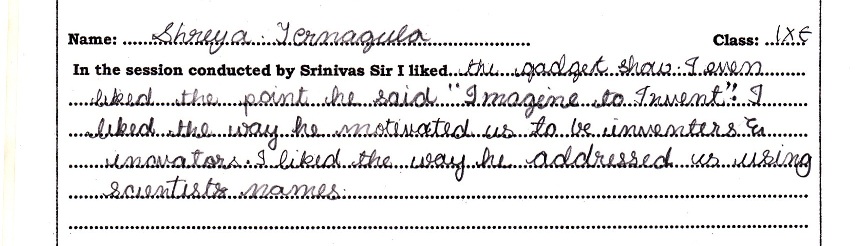 Name: Shreya. Yernagula Class: IXE
In the session conducted by Srinivas Sir I liked the gadget show. I even
liked the point he said "Imagine to Invent". I
liked the way he motivated us to be inventers &
inovators. I liked the way he addressed us using
scientists names.